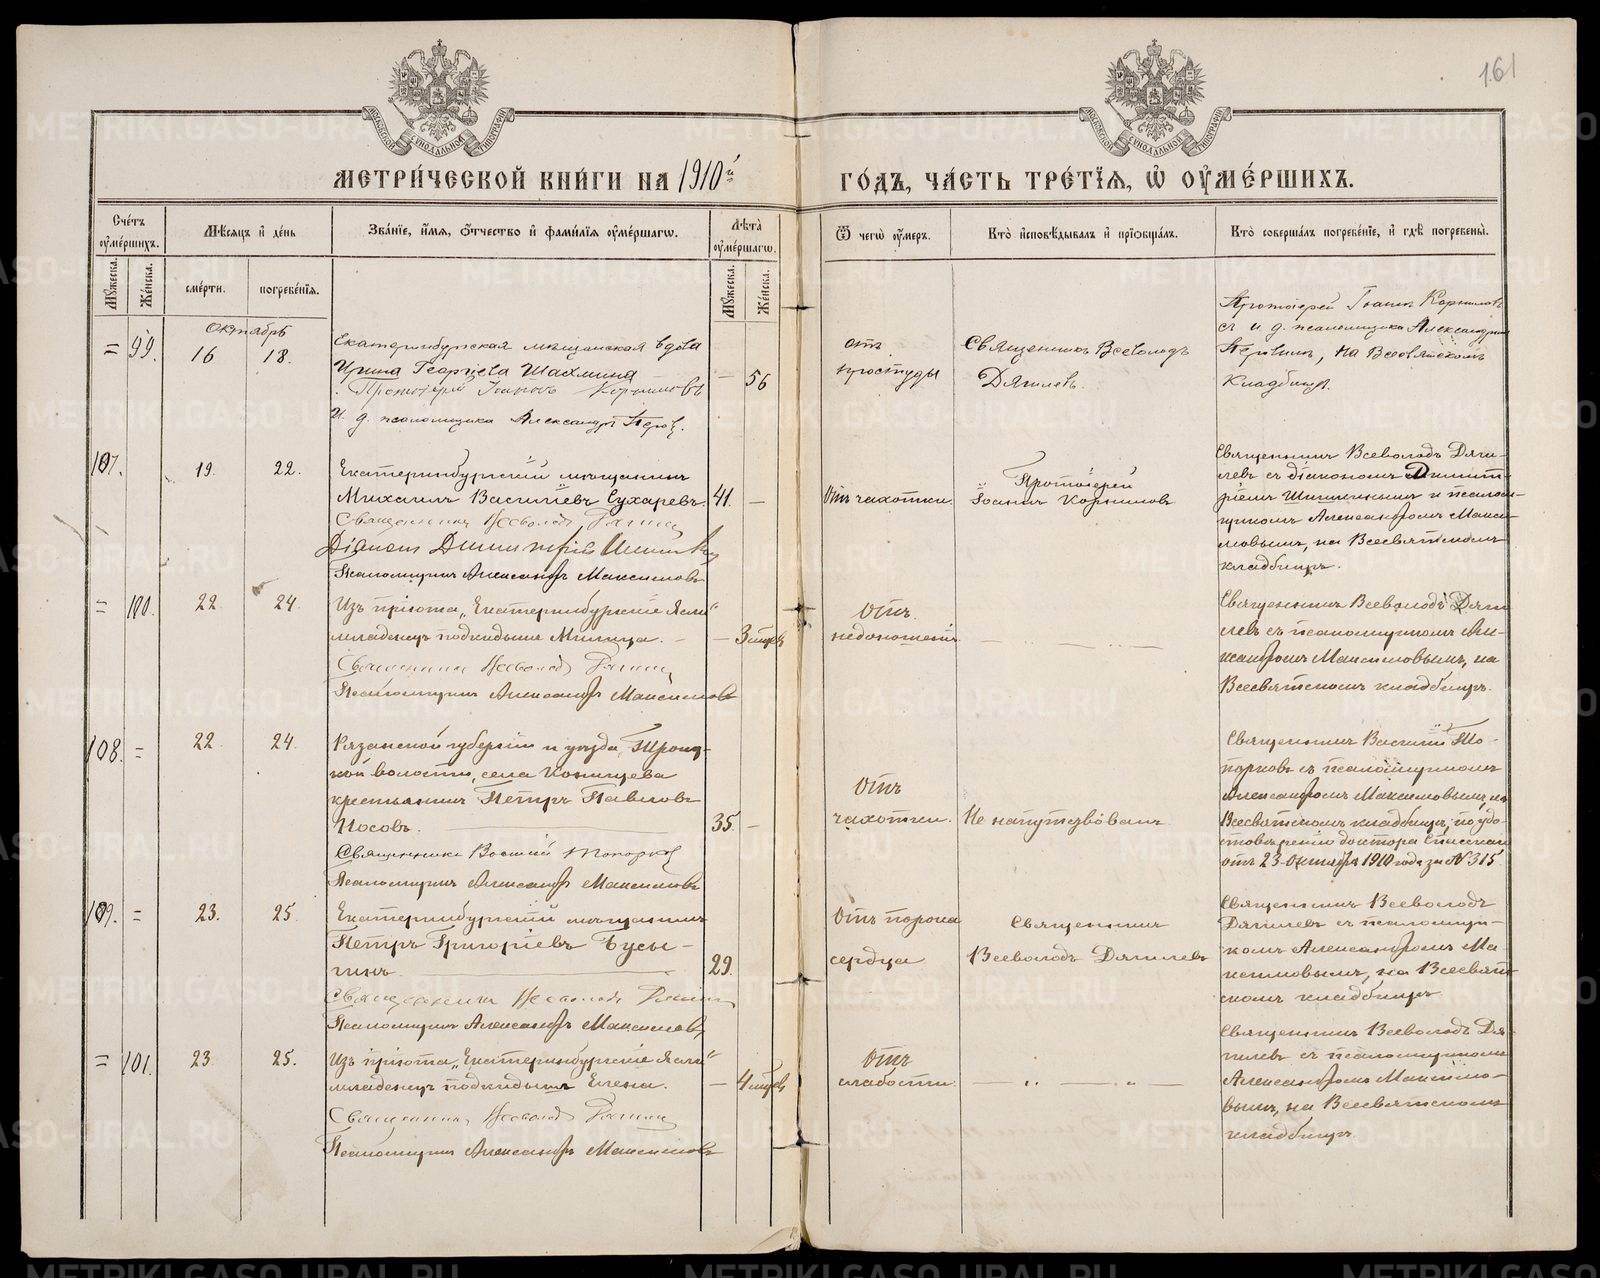 161
МЕТРИ́ЧЕСКОЙ КНИ́ГИ НА 1910й ГО́ДЪ, ЧА́СТЬ ТРЕ́ТІЯ, Ѡ҆ ОУ҆МЕ́РШИХЪ.
Сче́тъ оу҆ме́ршихъ.
Мѣ́сяцъ и҆ де́нь
Зва́нїе, и҆́мя, ѻ҆́тчество и҆ фами́лїя оу҆ме́ршагѡ.
Лѣ́та оу҆ме́ршагѡ.
Ѿ чегѡ̀ оу҆́меръ.
Кто̀ и҆сповѣ́дывалъ и҆ прїѡбща́лъ.
Кто̀ соверша́лъ погребе́нїе, и҆ гдѣ̀ погребены̀.
Му́жеска.
Же́нска.
сме́рти.
погребе́нїя.
Му́жеска.
Же́нска.
Октябрь
= 99. 16 18.
Екатеринбургская мѣщанская вдова
Ирина Георгіева Шахмина
— 56
Протоіерей Іоаннъ Корниловъ
И. д. псаломщика Александръ Перов
отъ
простуды
Священникъ Всеволодъ
Дягилевъ.
Протоіерей Іоаннъ Корниловъ
съ и. д. псаломщика Александромъ
Перовымъ, на Всесвятскомъ
кладбищѣ.
107. 19. 22.
Екатеринбургскій мѣщанинъ
Михаилъ Василіевъ Сухаревъ.
41. —
Священникъ Всеволодъ Дягилев
Діаконъ Димитрій Шишкин
Псаломщикъ Александръ Максимовъ
Отъ чахотки.
Протоіерей
Іоаннъ Корниловъ
Священникъ Всеволодъ Дяги-
левъ съ діакономъ Димит-
ріемъ Шишкинымъ и псалом-
щикомъ Александромъ Макси-
мовымъ, на Всесвятскомъ
кладбищѣ.
= 100. 22. 24.
Изъ пріюта „Екатеринбургскіе Ясли“
младенецъ подкидышъ Милица. —
— 3 мѣсяц
Священникъ Всеволодъ Дягилев
Псаломщикъ Александръ Максимовъ
Отъ
недоношенія
Священникъ Всеволодъ Дяги-
левъ съ псаломщикомъ Але-
ксандромъ Максимовымъ, на
Всесвятскомъ кладбищѣ.
108. = 22. 24.
Рязанской губерніи и уѣзда, Троиц-
кой волости, села Конищева
крестьянинъ Петръ Павловъ
Носовъ.
35. —
Священникъ Василій Топорков
Псаломщикъ Александръ Максимовъ
Отъ
чахотки.
Не напутствованъ
Священникъ Василій То-
порковъ съ псаломщикомъ
Александромъ Максимовымъ, на
Всесвятскомъ кладбищѣ, по удо-
стовѣренію доктора
отъ 23 октября 1910 года за № 315
109. = 23. 25.
Екатеринбургскій мѣщанинъ
Петръ Григоріевъ Бусы-
гинъ.
29.
Священникъ Всеволодъ Дягилев
Псаломщикъ Александръ Максимовъ
Отъ порока
сердца
Священникъ
Всеволодъ Дягилевъ
Священникъ Всеволодъ
Дягилевъ съ псаломщи-
комъ Александромъ Ма-
ксимовымъ, на Всесвят-
скомъ кладбищѣ
= 101. 23. 25.
Изъ пріюта „Екатеринбургскіе Ясли“
младенецъ подкидышъ Елена.
— 4 мѣсяц
Священникъ Всеволодъ Дягилев
Псаломщикъ Александръ Максимовъ
Отъ
слабости.
Священникъ Всеволодъ Дя-
гилевъ съ псаломщикомъ
Александромъ Максимо-
вымъ, на Всесвятскомъ
кладбищѣ.
METRIKI.GASO-URAL.RU